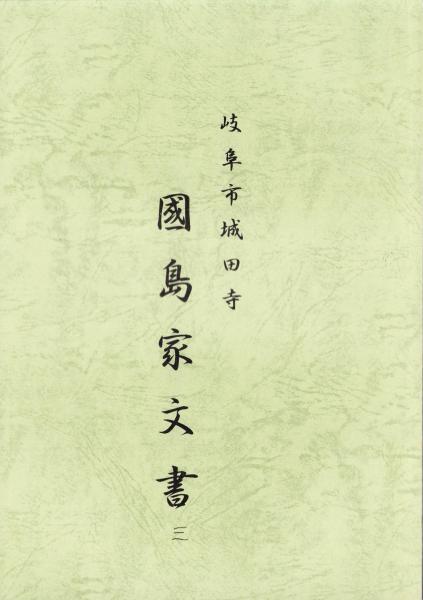 岐阜市城田寺
國島家文書
三